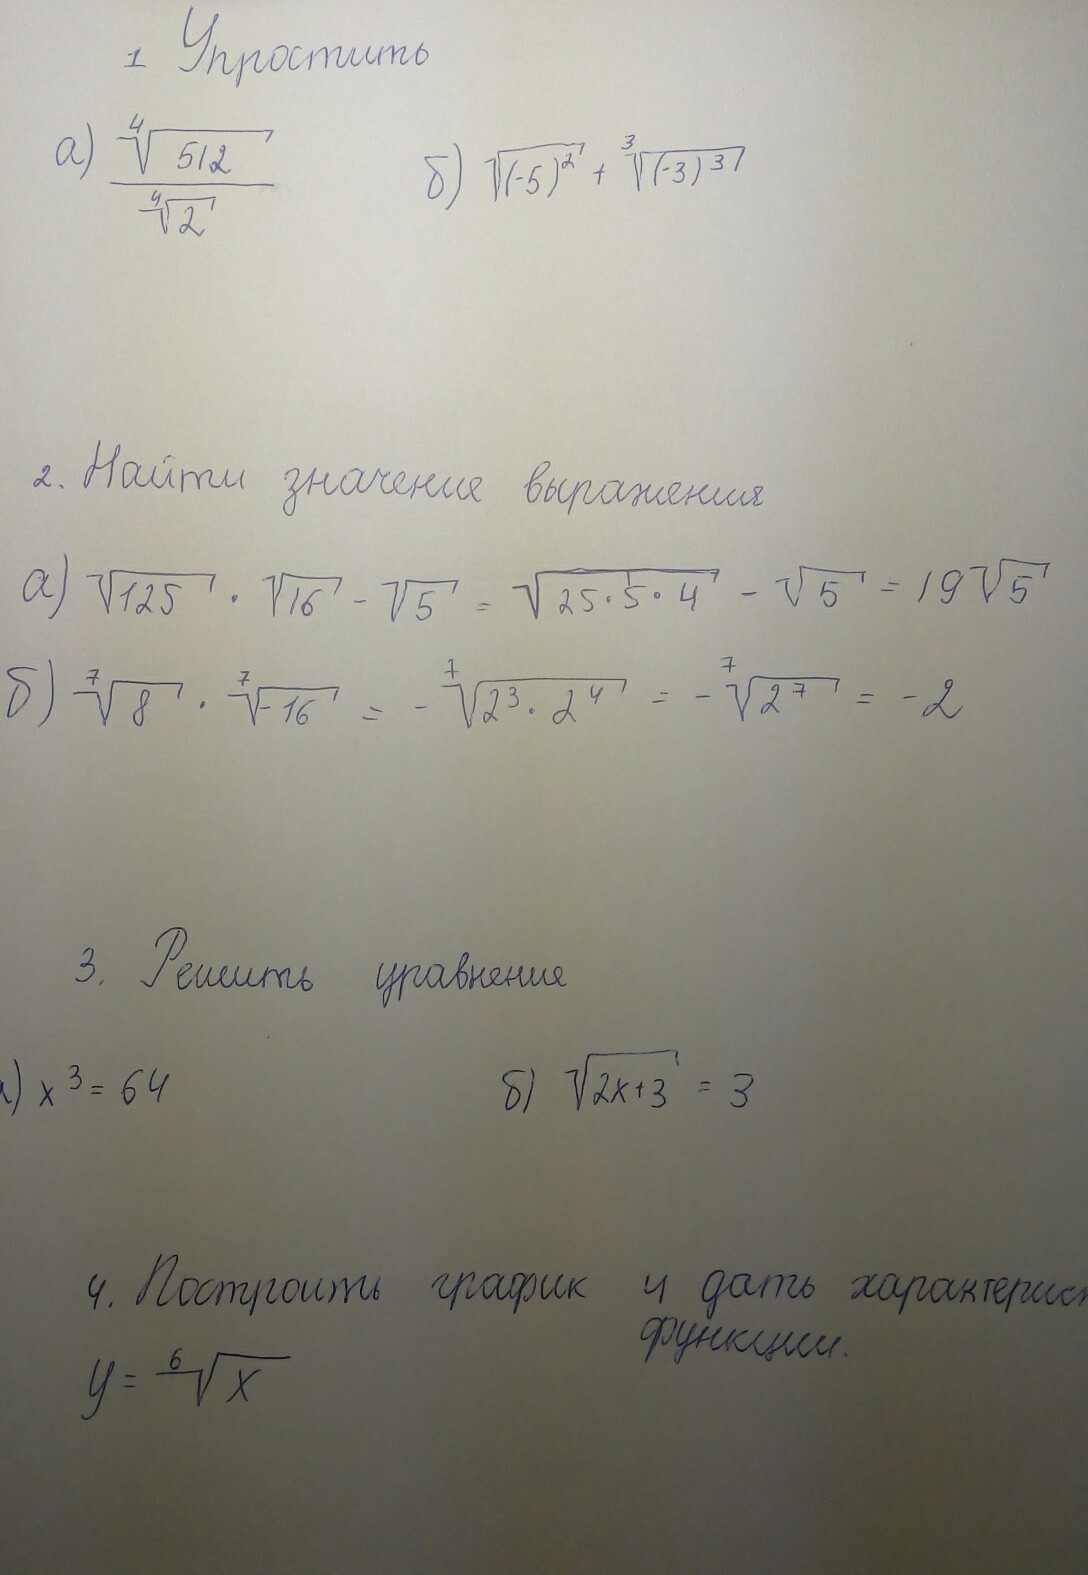 1 Упростить
а) ⁴√512 / ⁴√2 б) √(-5)² + ³√(-3)³
2. Найти значение выражения
а) √125 · √16 - √5 = √25·5·4 - √5 = 19√5
б) ⁷√8 · ⁷√-16 = - ⁷√2³·2⁴ = - ⁷√2⁷ = -2
3. Решить уравнение
а) x³ = 64 б) √2x+3 = 3
4. Построить график и дать характерист
функции.
y = ⁶√x